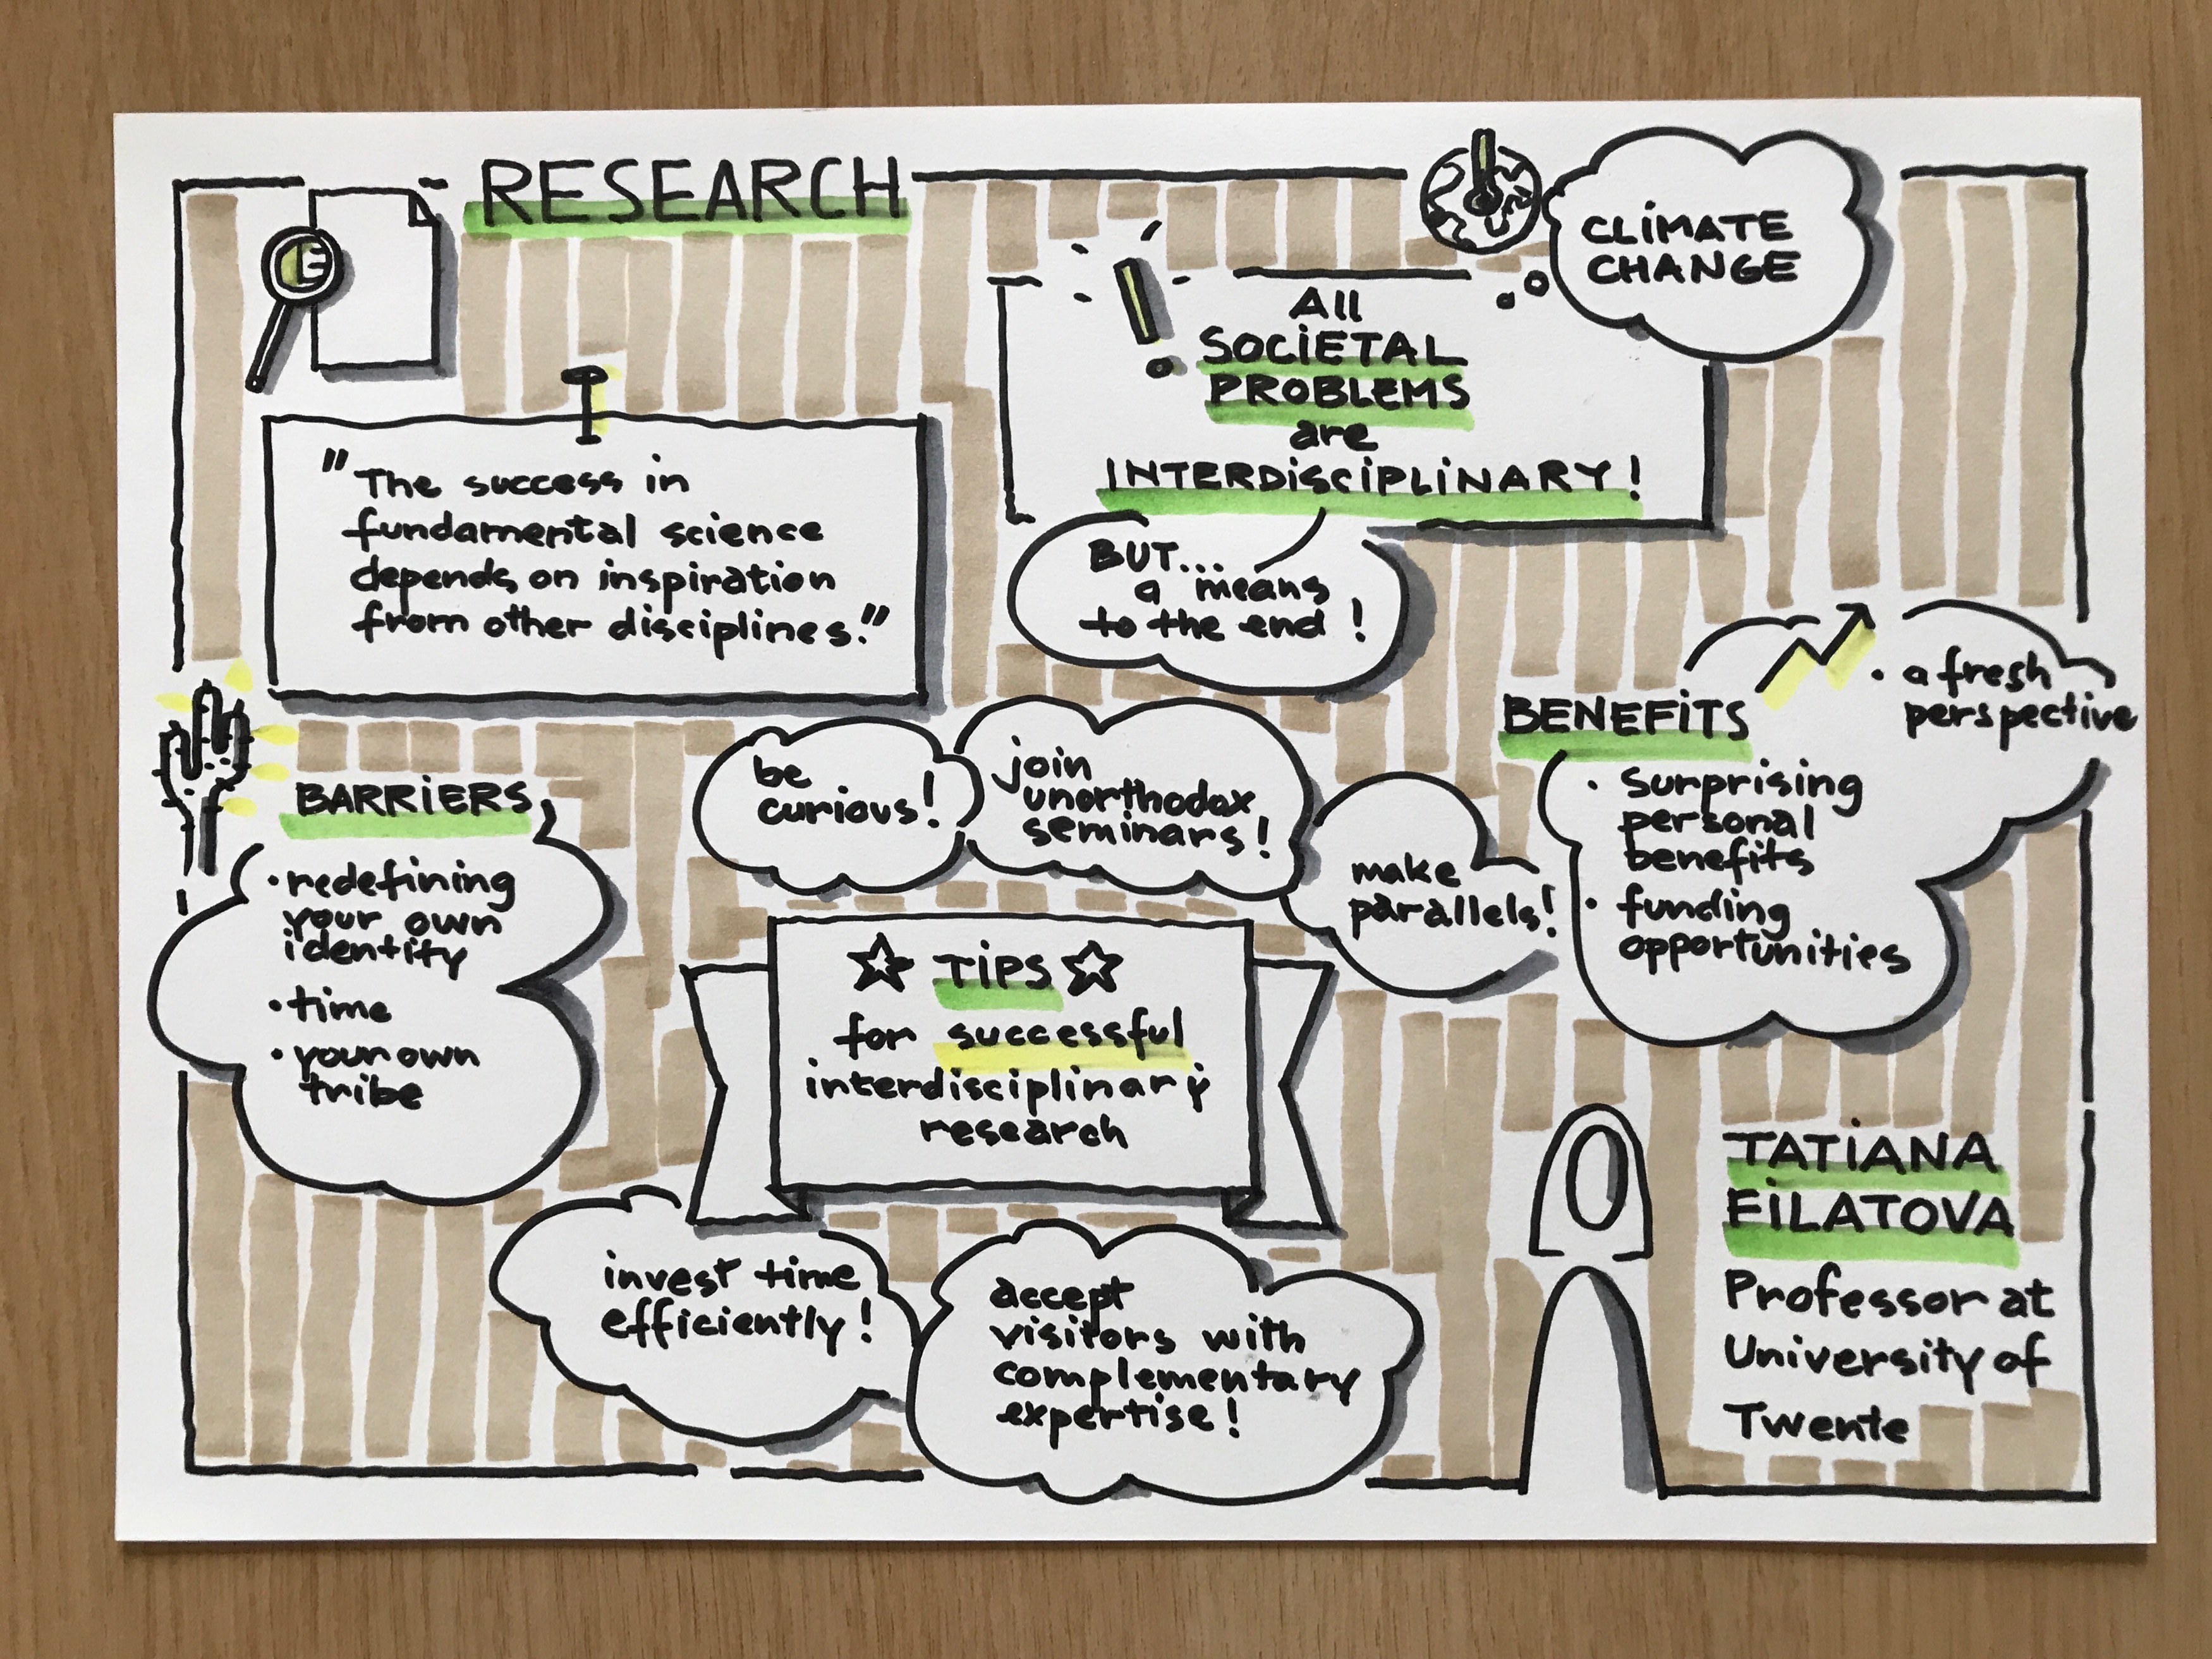 RESEARCH
"The success in
fundamental science
depends on inspiration
from other disciplines."
CLIMATE
CHANGE
All
SOCIETAL
PROBLEMS
are
INTERDISCIPLINARY!
BUT...
a means
to the end!
BARRIERS
• redefining
your own
identity
• time
• your own
tribe
be
curious!
join
unorthodox
seminars!
make
parallels!
BENEFITS
• a fresh
perspective
• surprising
personal
benefits
• funding
opportunities
TIPS
for successful
interdisciplinary
research
invest time
efficiently!
accept
visitors with
complementary
expertise!
TATIANA
FILATOVA
Professor at
University of
Twente